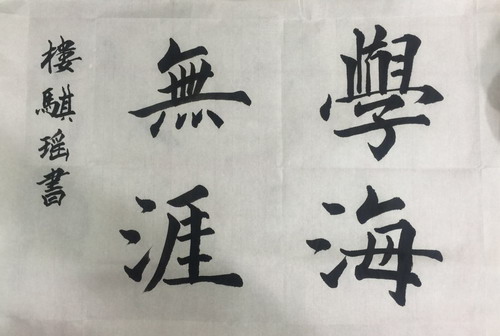 學海
無涯
樓騏瑶書